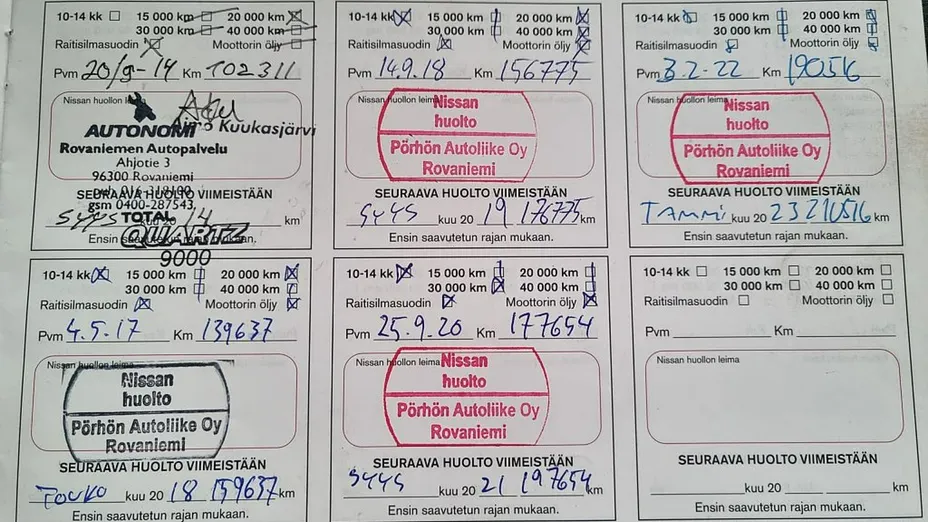 10-14 kk 15 000 km 20 000 km
30 000 km 40 000 km
Raitisilmasuodin Moottorin öljy
Pvm 20/9-14 Km 102311
Nissan huollon leima
AUTONOMI Kuukasjärvi
Rovaniemen Autopalvelu
Ahjotie 3
96300 Rovaniemi
SEURAAVA HUOLTO VIIMEISTÄÄN
gsm 0400-287543,
SYYS kuu 20 14 km
TOTAL
Ensin saavutetun rajan mukaan.
QUARTZ
9000
10-14 kk 15 000 km 20 000 km
30 000 km 40 000 km
Raitisilmasuodin Moottorin öljy
Pvm 14.9.18 Km 156775
Nissan huollon leima
Nissan
huolto
Pörhön Autoliike Oy
Rovaniemi
SEURAAVA HUOLTO VIIMEISTÄÄN
SYYS kuu 20 19 176775 km
Ensin saavutetun rajan mukaan.
10-14 kk 15 000 km 20 000 km
30 000 km 40 000 km
Raitisilmasuodin Moottorin öljy
Pvm 3.2-22 Km 190516
Nissan huollon leima
Nissan
huolto
Pörhön Autoliike Oy
Rovaniemi
SEURAAVA HUOLTO VIIMEISTÄÄN
TAMMI kuu 20 23 210516 km
Ensin saavutetun rajan mukaan.
10-14 kk 15 000 km 20 000 km
30 000 km 40 000 km
Raitisilmasuodin Moottorin öljy
Pvm 4.5.17 Km 139637
Nissan huollon leima
Nissan
huolto
Pörhön Autoliike Oy
Rovaniemi
SEURAAVA HUOLTO VIIMEISTÄÄN
TOUKO kuu 20 18 159637 km
Ensin saavutetun rajan mukaan.
10-14 kk 15 000 km 20 000 km
30 000 km 40 000 km
Raitisilmasuodin Moottorin öljy
Pvm 25.9.20 Km 177654
Nissan huollon leima
Nissan
huolto
Pörhön Autoliike Oy
Rovaniemi
SEURAAVA HUOLTO VIIMEISTÄÄN
SYYS kuu 20 21 197654 km
Ensin saavutetun rajan mukaan.
10-14 kk 15 000 km 20 000 km
30 000 km 40 000 km
Raitisilmasuodin Moottorin öljy
Pvm Km
Nissan huollon leima
SEURAAVA HUOLTO VIIMEISTÄÄN
kuu 20 km
Ensin saavutetun rajan mukaan.